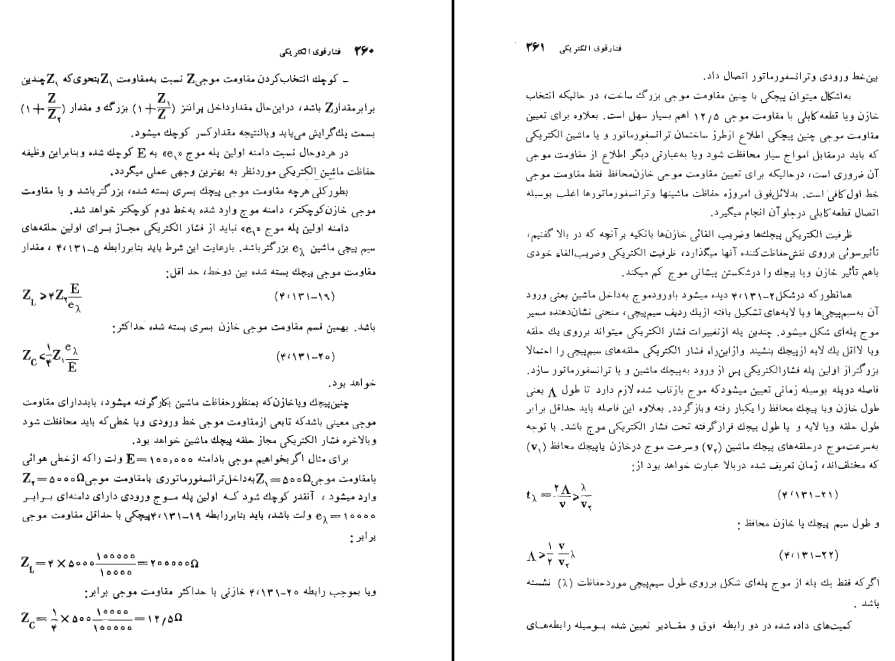 ۲۶۰ فشارقوی الکتریکی
– کوچك انتخاب‌کردن مقاومت موجیZ نسبت به‌مقاومت Z۱بنحوی‌که Z۱چندین
برابرمقدارZ باشد، دراین‌حال مقدارداخل پرانتز (Z۱/Z+۱) بزرگ و مقدار (Z/Z۲+۱)
بسمت یك‌گرایش می‌یابد وبالنتیجه مقدارکسر کوچك میشود.
در هردوحال نسبت دامنه اولین پله موج «e۱» به E کوچك شده وبنابراین وظیفه
حفاظت ماشین الکتریکی موردنظر به بهترین وجهی عملی میگردد.
بطورکلی هرچه مقاومت موجی پیچك بسری بسته شده، بزرگترباشد و یا مقاومت
موجی خازن‌کوچکتر، دامنه موج وارد شده به‌خط دوم کوچکتر خواهد شد.
دامنه اولین پله موج «e۱» نباید از فشار الکتریکی مجاز بـرای اولین حلقه‌های
سیم پیچی ماشین eλ بزرگترباشد. بارعایت این شرط باید بنابررابطه ۵–۴،۱۳۱ ، مقدار
مقاومت موجی پیچك بسته شده بین دوخط، حد اقل:
ZL ⩾ ۴Z۲ E/eλ (۱۹–۴،۱۳۱)
باشد. بهمین قسم مقاومت موجی خازن بسری بسته شده حداکثر:
ZC ⩽ ۱/۴ Z۱ eλ/E (۲۰–۴،۱۳۱)
خواهد بود.
چنین‌پیچك ویاخازن‌که بمنظورحفاظت ماشین بکارگرفته میشود، بایددارای مقاومت
موجی معینی باشدکه تابعی ازمقاومت موجی خط ورودی ویا خطی‌که باید محافظت شود
وبالاخره فشار الکتریکی مجاز حلقه پیچك ماشین خواهد بود.
برای مثال اگربخواهیم موجی بادامنه E=۱۰۰,۰۰۰ ولت راکه ازخطی هوائی
بامقاومت‌موجی Z۱=۵۰۰Ωبه‌داخل‌ترانسفورماتوری بامقاومت موجی Z۲=۵۰۰۰Ω
وارد میشود ، آنقدر کوچك شود کـه اولین پله مـوج ورودی دارای دامنه‌ای بـرابـر
eλ=۱۰۰۰۰ ولت باشد، باید بنابررابطه ۱۹–۴،۱۳۱پیچکی با حداقل مقاومت موجی
برابر:
ZL=۴×۵۰۰۰ ۱۰۰۰۰۰/۱۰۰۰۰=۲۰۰۰۰۰Ω
ویا بموجب رابطه ۲۰–۴،۱۳۱ خازنی با حداکثر مقاومت موجی برابر:
ZC=۱/۴×۵۰۰ ۱۰۰۰۰/۱۰۰۰۰۰=۱۲/۵Ω
فشارقوی الکتریکی ۲۶۱
بین‌خط ورودی وترانسفورماتور اتصال داد.
به‌اشکال میتوان پیچکی با چنین مقاومت موجی بزرگ ساخت، در حالیکه انتخاب
خازن ویا قطعه‌کابلی با مقاومت موجی ۱۲/۵ اهم بسیار سهل است. بعلاوه برای تعیین
مقاومت موجی چنین پیچکی اطلاع ازطرز ساختمان ترانسفورماتور و یا ماشین الکتریکی
که باید درمقابل امواج سیار محافظت شود ویا به‌عبارتی دیگر اطلاع از مقاومت موجی
آن ضروری است، درحالیکه برای تعیین مقاومت موجی خازن‌محافظ فقط مقاومت موجی
خط اول‌کافی است. بدلائل‌فوق امروزه حفاظت ماشینها وترانسفورماتورها اغلب بوسیله
اتصال قطعه‌کابلی درجلوآن انجام میگیرد.
ظرفیت الکتریکی پیچك‌ها وضریب القائی خازن‌ها بانکیه برآنچه که در بالا گفتیم،
تأثیرسوئی برروی نقش‌حفاظت‌کننده آنها میگذارد، ظرفیت الکتریکی وضریب‌القاء خودی
باهم تأثیر خازن ویا پیچك را درشکستن پیشانی موج کم میکند.
همانطورکه درشکل۲–۴،۱۳۱ دیده میشود باورودموج به‌داخل ماشین یعنی ورود
آن به‌سیم‌پیچی‌ها ویا لایه‌های تشکیل یافته ازیك ردیف سیم‌پیچی، منحنی نشان‌دهنده مسیر
موج پله‌ای شکل میشود. چندین پله ازتغییرات فشار الکتریکی میتواند برروی یك حلقه
ویا لااقل یك لایه ازپیچك بنشیند وازاین‌راه فشار الکتریکی حلقه‌های سیم‌پیچی را احتمالا
بزرگتراز اولین پله فشارالکتریکی پس از ورود به‌پیچك ماشین و یا ترانسفورماتور سازد.
فاصله دوپله بوسیله زمانی تعیین میشودکه موج بازتاب شده لازم دارد تا طول Λ یعنی
طول خازن ویا پیچك محافظ را یکبار رفته وبازگردد. بعلاوه این فاصله باید حداقل برابر
طول حلقه ویا لایه و یا طول پیچك قرارگرفته تحت فشار الکتریکی موج باشد. با توجه
به‌سرعت‌موج درحلقه‌های پیچك ماشین (v۲) وسرعت موج درخازن یاپیچك محافظ (v۱)
که مختلف‌اند، زمان تعریف شده دربالا عبارت خواهد بود از:
tλ = ۲Λ/v ⩾ λ/v۲ (۲۱–۴،۱۳۱)
و طول سیم پیچك یا خازن محافظ :
Λ ⩾ ۱/۲ v/v۲ λ (۲۲–۴،۱۳۱)
اگرکه فقط یك پله از موج پله‌ای شکل برروی طول سیم‌پیچی موردحفاظت (λ) نشسته
باشد .
کمیت‌های داده شده در دو رابطه فوق و مقـادیر تعیین شده بـوسیله رابطه‌هـای